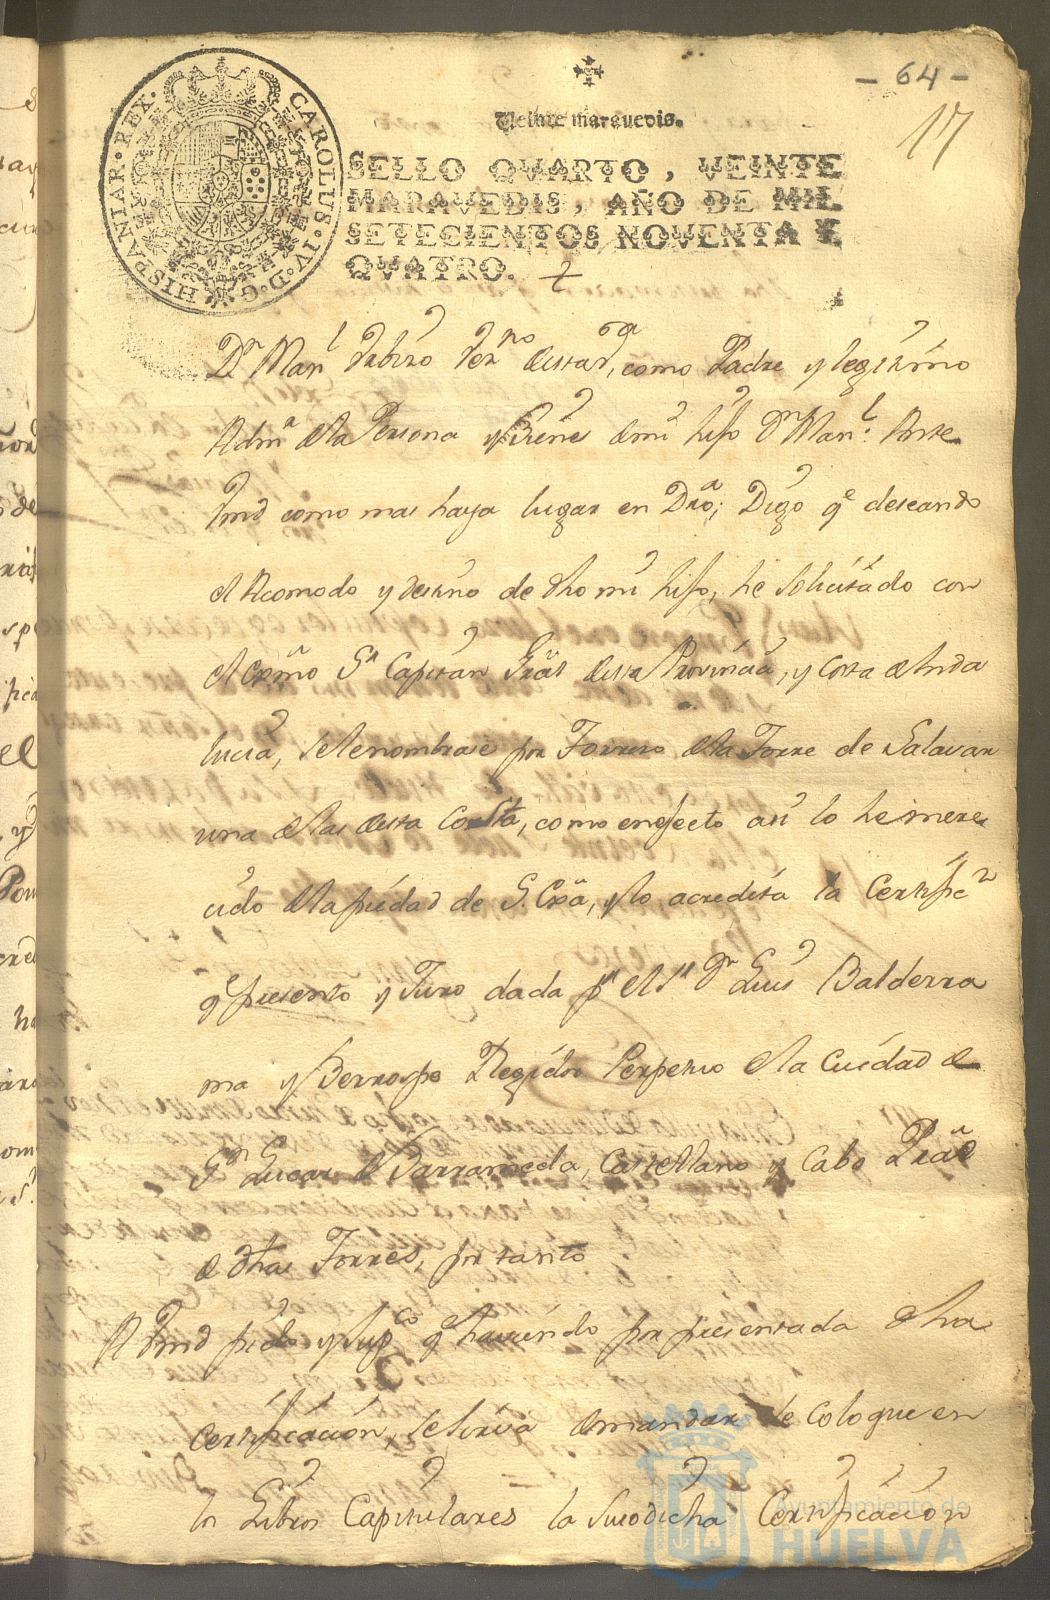 - 64 -
17
Veinte maravedis.
CAROLUS·IV·D·G·HISPANIAR·REX·
SELLO QVARTO, VEINTE
MARAVEDIS, AÑO DE MIL
SETECIENTOS NOVENTA Y
QVATRO.
Dn Manl como Padre y legitimo
Admr dela Persona y Bienes demi hijo Dn Manl. Ante
Vmd como mas haya lugar en Dro, Digo qe deseando
el Acomodo y destino de dho mi hijo, he solicitado con
el Exmo Sr Capitan Gral desta Provincia, y Costa de Anda
lucia, sele nombrase por Torrero dela Torre de Salavar
una delas desta Costa, como enefecto asi lo he mere
cido dela piedad de S. Exa, y lo acredita la Certific
qe presento y Juro dada pr el Sr Dn Luis Balderra
ma y Berrospe Regidor Perpetuo dela Ciudad de
Sn Lucar de Barrameda, Castellano y Cabo Pral
de dhas Torres, por tanto
A Vmd pido y supco qe haviendo por presentada dha
Certificacion, se sirva demandar se coloque en
los Libros Capitulares la susodicha Certificacion
Ayuntamiento de
HUELVA